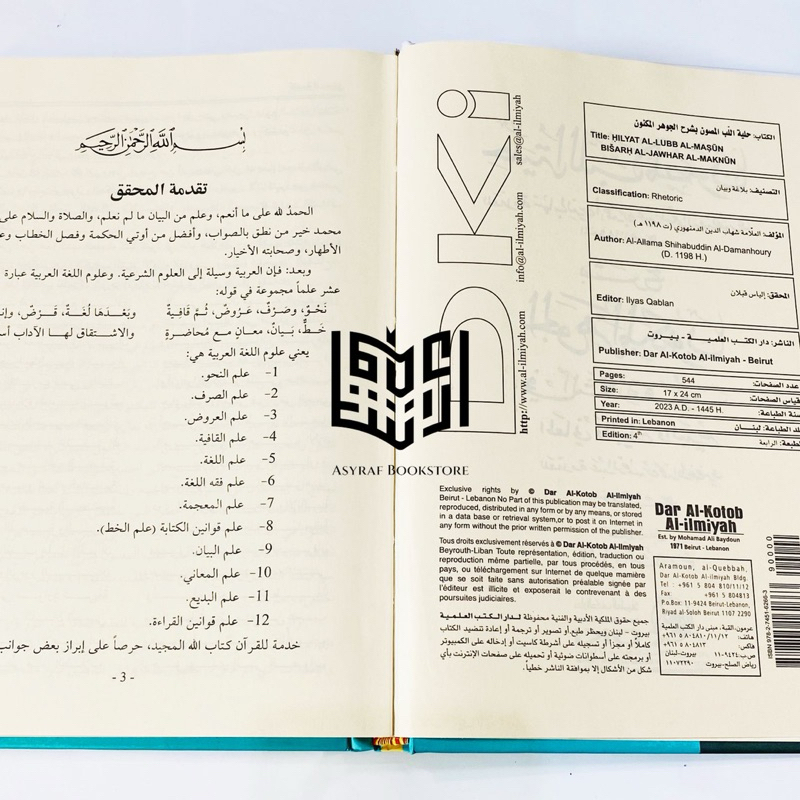 sales@al-ilmiyah.com
info@al-ilmiyah.com
http://www.al-ilmiyah.com
الكتاب: حلية اللب المصون بشرح الجوهر المكنون
Title: ḤILYAT AL-LUBB AL-MAṢŪN
BIŠARḤ AL-JAWHAR AL-MAKNŪN
التصنيف: بلاغة وبيان
Classification: Rhetoric
المؤلف: العلامة شهاب الدين الدمنهوري (ت ١١٩٨ هـ)
Author: Al-Allama Shihabuddin Al-Damanhoury
(D. 1198 H.)
المحقق: إلياس قبلان
Editor: Ilyas Qablan
الناشر: دار الكتب العلمية - بيروت
Publisher: Dar Al-Kotob Al-ilmiyah - Beirut
Pages: 544 عدد الصفحات:
Size: 17 x 24 cm قياس الصفحات:
Year: 2023 A.D. - 1445 H. سنة الطباعة:
Printed in: Lebanon بلد الطباعة: لبنان
Edition: 4th الطبعة: الرابعة
Exclusive rights by © Dar Al-Kotob Al-ilmiyah
Beirut - Lebanon No Part of this publication may be translated,
reproduced, distributed in any form or by any means, or stored
in a data base or retrieval system,or to post it on Internet in
any form without the prior written permission of the publisher.
Tous droits exclusivement réservés à © Dar Al-Kotob Al-ilmiyah
Beyrouth-Liban Toute représentation, édition, traduction ou
reproduction même partielle, par tous procédés, en tous
pays, ou téléchargement sur Internet de quelque manière
que se soit faite sans autorisation préalable signée par
l'éditeur est illicite et exposerait le contrevenant à des
poursuites judiciaires.
جميع حقوق الملكية الأدبية والفنية محفوظة لدار الكتب العلمية
بيروت - لبنان ويحظر طبع أو تصوير أو ترجمة أو إعادة تنضيد الكتاب
كاملاً أو مجزأ أو تسجيله على أشرطة كاسيت أو إدخاله على الكمبيوتر
أو برمجته على أسطوانات ضوئية أو تحميله على صفحات الإنترنت بأي
شكل من الأشكال إلا بموافقة الناشر خطياً.
Dar Al-Kotob
Al-ilmiyah
Est. by Mohamad Ali Baydoun
1971 Beirut - Lebanon
Aramoun, al-Quebbah,
Dar Al-Kotob Al-ilmiyah Bldg.
Tel : +961 5 804 810/11/12
Fax : +961 5 804813
P.o.Box: 11-9424 Beirut-Lebanon,
Riyad al-Soloh Beirut 1107 2290
عرمون، القبة، مبنى دار الكتب العلمية
هاتف: +٩٦١ ٥ ٨٠٤٨١٠/١١/١٢
فاكس: +٩٦١ ٥ ٨٠٤٨١٣
ص.ب: ١١-٩٤٢٤ بيروت-لبنان
رياض الصلح-بيروت ١١٠٧٢٢٩٠
90000
ISBN 978-2-7451-6266-3
بسم الله الرحمن الرحيم
تقدمة المحقق
الحمدُ لله على ما أنعم، وعلم من البيان ما لم نعلم، والصلاة والسلام على
محمد خير من نطق بالصواب، وأفضل من أوتي الحكمة وفصل الخطاب
الأطهار، وصحابته الأخيار.
وبعد: فإن العربية وسيلة إلى العلوم الشرعية. وعلوم اللغة العربية عبارة
عشر علماً مجموعة في قوله:
نَحْوٌ، وصَرْفٌ، عَرُوضٌ، ثُمَّ قافِيةٌ وبَعْدَها لُغَةٌ، قَرْضٌ،
خَطٌّ، بَيانٌ، معانٍ مع مُحاضرةٍ والاشتقاق لهـا الآداب
يعني علوم اللغة العربية هي:
1- علم النحو.
2- علم الصرف.
3- علم العروض.
4- علم القافية.
5- علم اللغة.
6- علم فقه اللغة.
7- علم المعجمة.
8- علم قوانين الكتابة (علم الخط).
9- علم البيان.
10- علم المعاني.
11- علم البديع.
12- علم قوانين القراءة.
خدمة للقرآن كتاب الله المجيد، حرصاً على إبراز بعض جوانب
- 3 -
DKi
ASYRAF BOOKSTORE